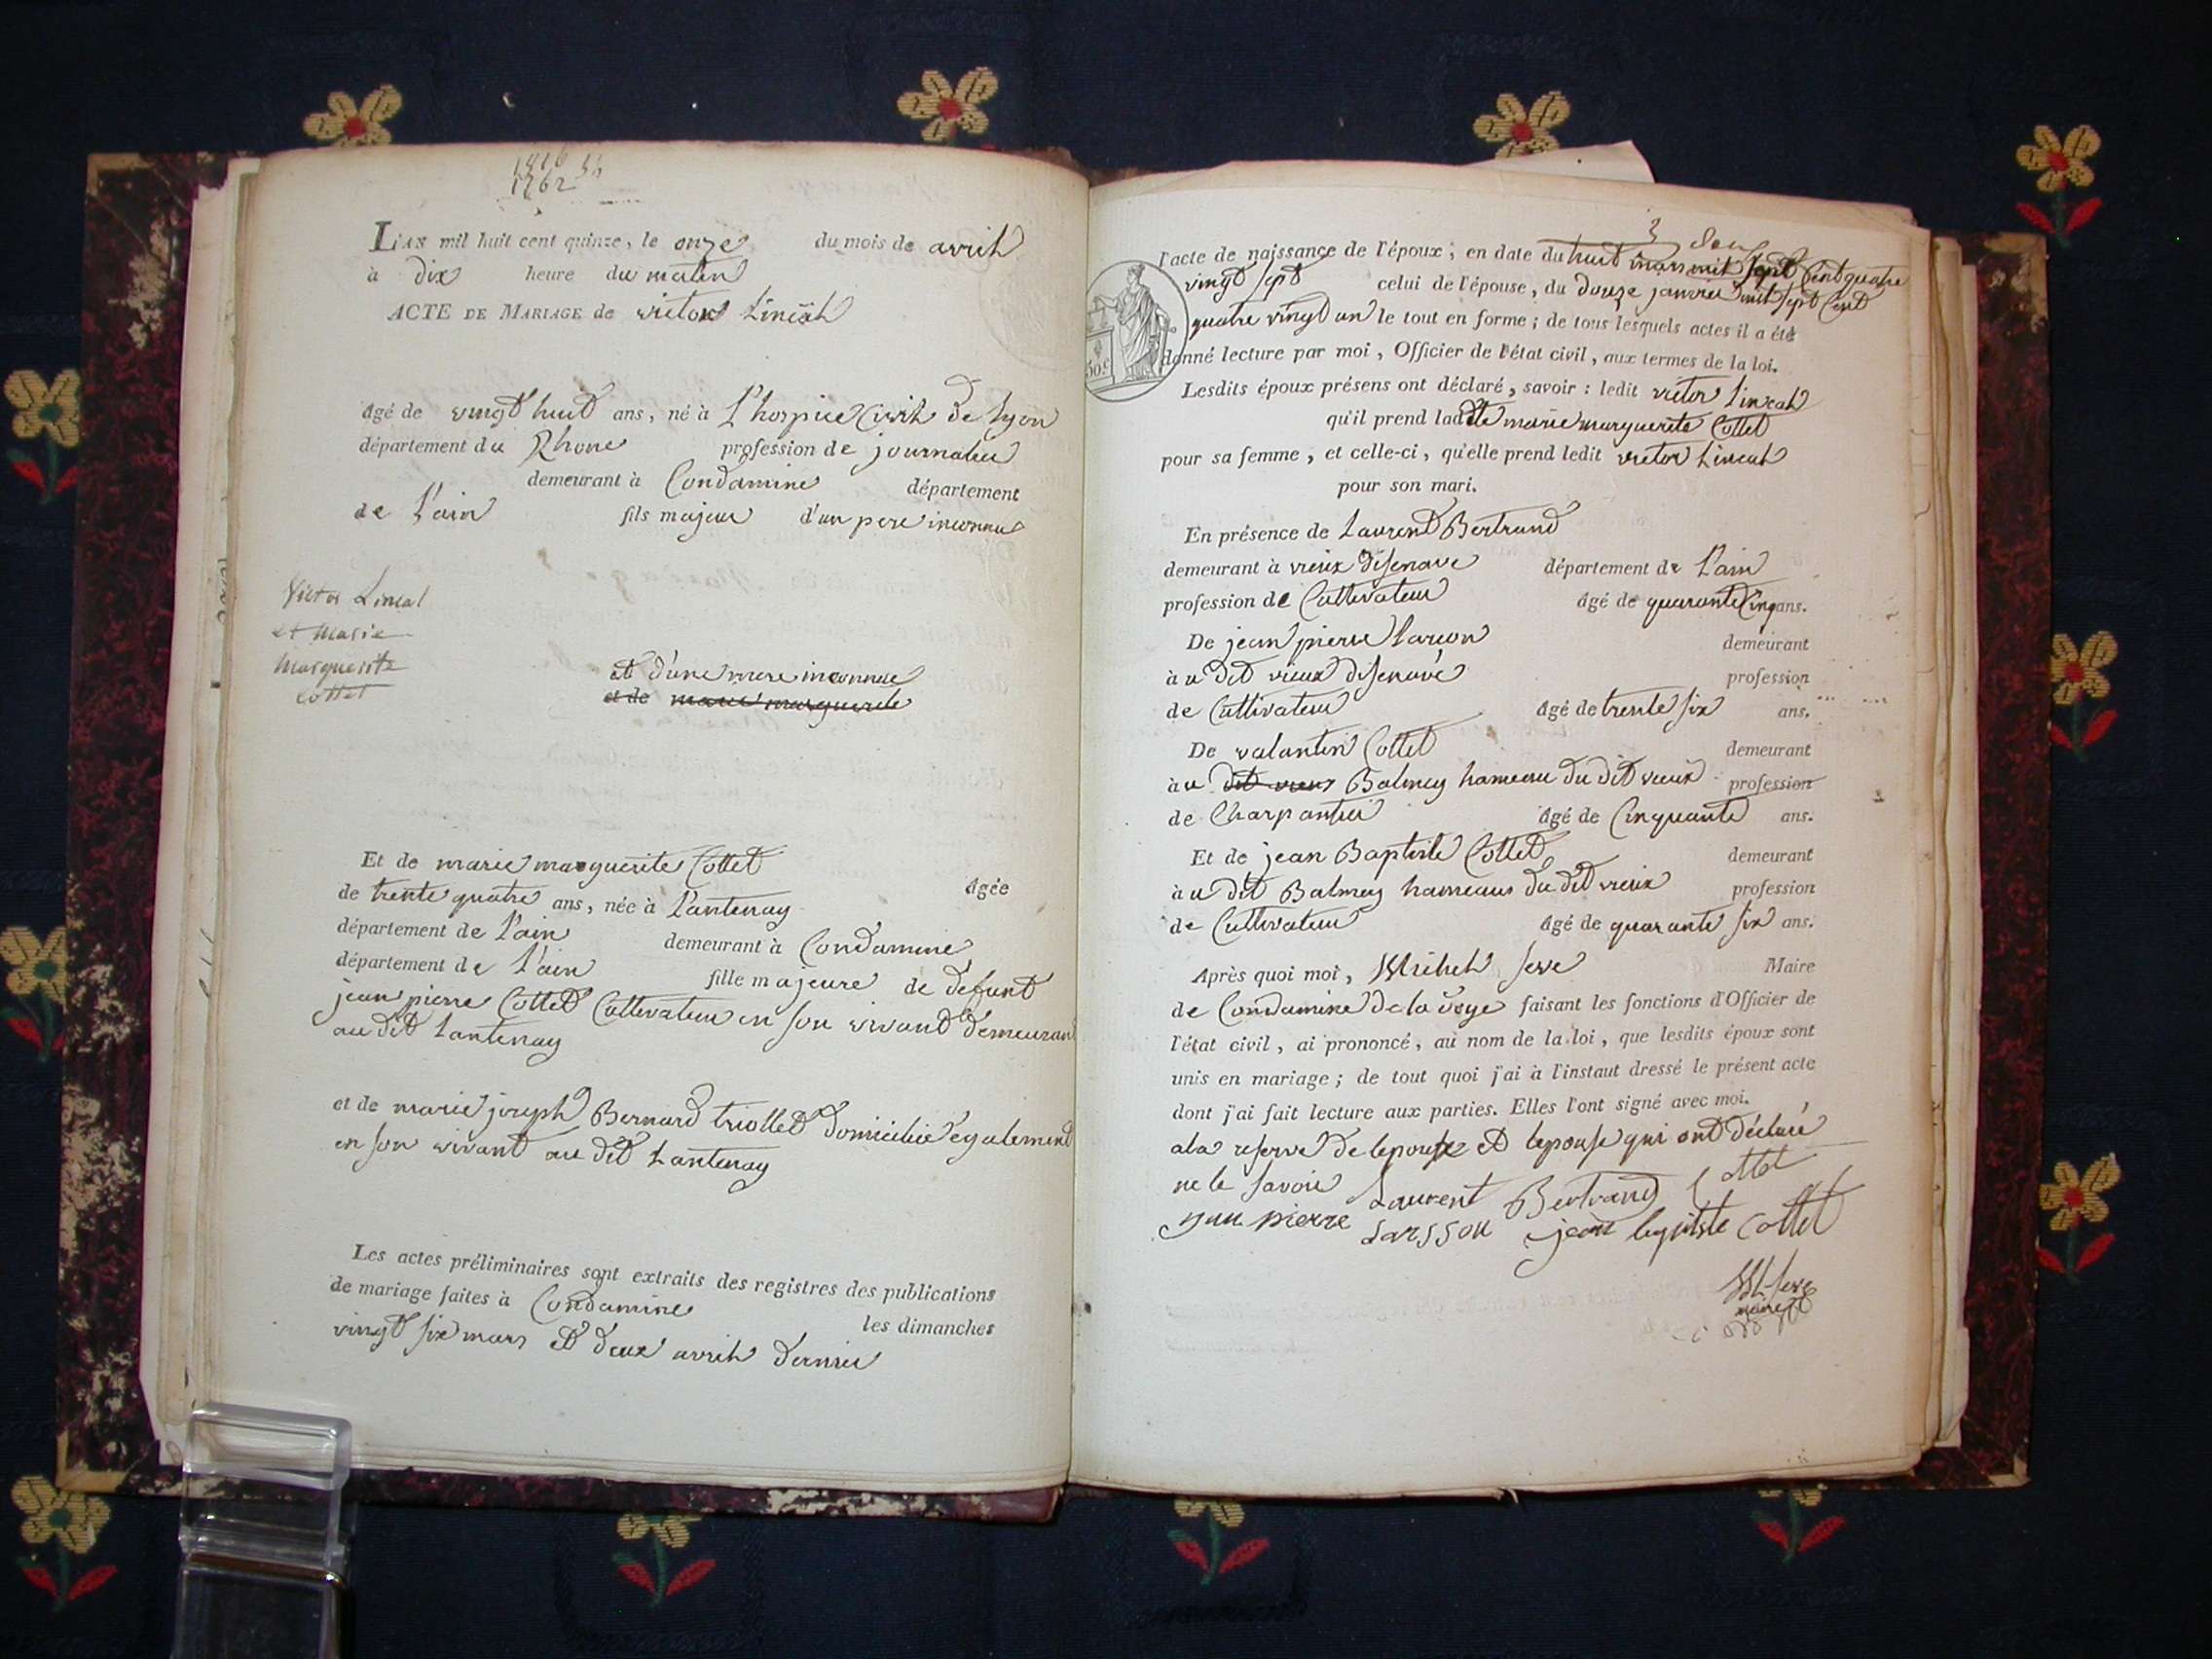 1816
1762
L'AN mil huit cent quinze, le onze du mois de avril
à dix heure du matin
ACTE DE MARIAGE de victor Lineal
âgé de vingt huit ans, né à L'hospice Civil de lyon
département du Rhone profession de journalier
demeurant à Condamine département
de L'ain fils majeur d'un pere inconnu
Victor Lineal
et Marie
Marguerite
Cottet
et d'une mere inconnue
et de marie marguerite
Et de marie marguerite Cottet âgée
de trente quatre ans, née à Lantenay
département de L'ain demeurant à Condamine
département de L'ain fille majeure de defunt
jean pierre Cottet Cultivateur en son vivant demeurant
au dit Lantenay
et de marie joseph Bernard triollet domiciliié egalement
en son vivant au dit Lantenay
Les actes préliminaires sont extraits des registres des publications
de mariage faites à Condamine les dimanches
vingt six mars et deux avril dernier
l'acte de naissance de l'époux; en date du huit mars mil sept Cent quatre
vingt sept celui de l'épouse, du douze janvier mil sept Cent
quatre vingt un le tout en forme; de tous lesquels actes il a été
donné lecture par moi, Officier de l'état civil, aux termes de la loi.
Lesdits époux présens ont déclaré, savoir: ledit victor Lineal
qu'il prend ladite marie marguerite Cottet
pour sa femme, et celle-ci, qu'elle prend ledit victor Lineal
pour son mari.
En présence de Laurent Bertrand
demeurant à vieux disenave département de L'ain
profession de Cultivateur âgé de quarante Cinq ans.
De jean pierre Larcon demeurant
à u dit vieux disenave profession
de Cultivateur âgé de trente six ans.
De valantin Cottet demeurant
à u dit vieux Balmey hameau du dit vieux profession
de Charpantier âgé de Cinquante ans.
Et de jean Baptiste Cottet demeurant
à u dit Balmey hameaus du dit vieux profession
de Cultivateur âgé de quarante six ans.
Après quoi moi, Michel seve Maire
de Condamine de la doye faisant les fonctions d'Officier de
l'état civil, ai prononcé, au nom de la loi, que lesdits époux sont
unis en mariage; de tout quoi j'ai à l'instaut dressé le présent acte
dont j'ai fait lecture aux parties. Elles l'ont signé avec moi.
ala reserve de lepoux et lepouse qui ont déclaré
ne le savoir Laurent Bertrand Cottet
jean pierre Larsson jean baptiste Cottet
M. seve
maire